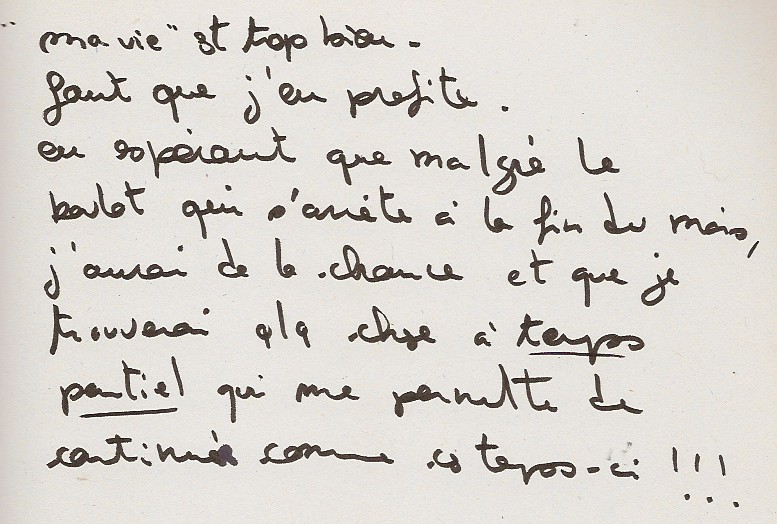 ma vie" est trop bien -
faut que j'en profite .
en espérant que malgré le
boulot qui s'arrête à la fin du mois,
j'aurai de la chance et que je
trouverai qlq chose à temps
partiel qui me permette de
continuer comme ces temps-ci !!!...